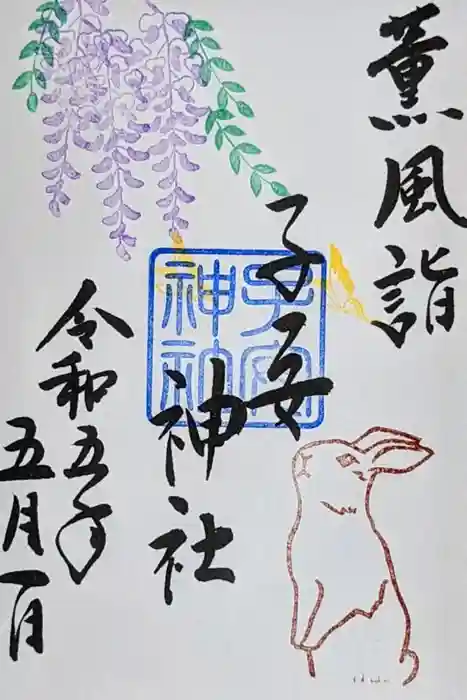 薫風詣
子安
神社
令和五年
五月一日
子安
神社